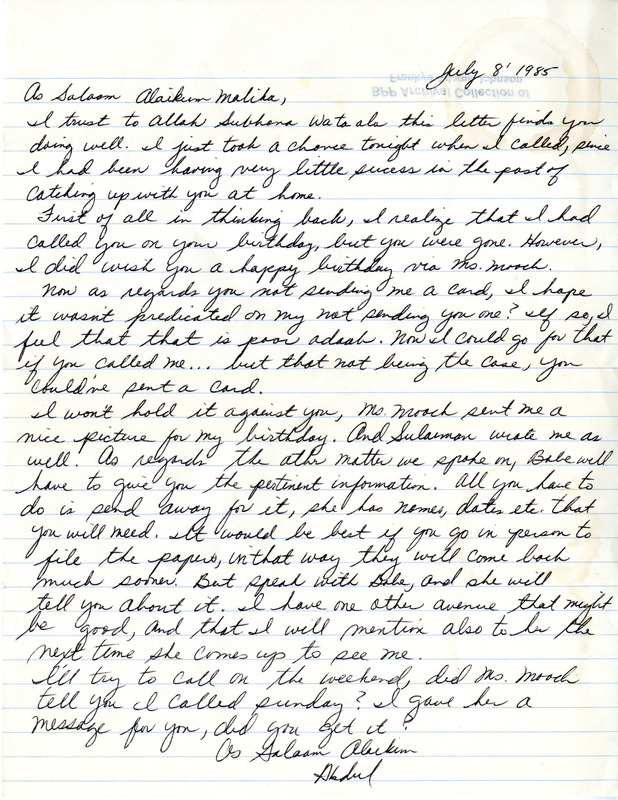 July 8' 1985
BPP Archival Collection of
As Salaam Alaikum Malika,
I trust to Allah Subhana Wata ala this letter finds you
doing well. I just took a chance tonight when I called, since
I had been having very little sucess in the past of
catching up with you at home.
First of all in thinking back, I realize that I had
called you on your birthday, but you were gone. However,
I did wish you a happy birthday via Ms. Mooch.
Now as regards you not sending me a card, I hope
it wasn't predicated on my not sending you one? If so, I
feel that that is poor adaab. Now I could go for that
if you called me... but that not being the case, you
could've sent a card.
I won't hold it against you, Ms. Mooch sent me a
nice picture for my birthday. And Sulaiman wrote me as
well. As regards the other matter we spoke on, Babe will
have to give you the pertinent information. All you have to
do is send away for it, she has names, dates etc. that
you will need. It would be best if you go in person to
file the papers, in that way they will come back
much sooner. But speak with Babe, and she will
tell you about it. I have one other avenue that might
be good, and that I will mention also to her the
next time she comes up to see me.
I'll try to call on the weekend, did Ms. Mooch
tell you I called sunday? I gave her a
message for you, did you get it?
As Salaam Alaikum
Abdul